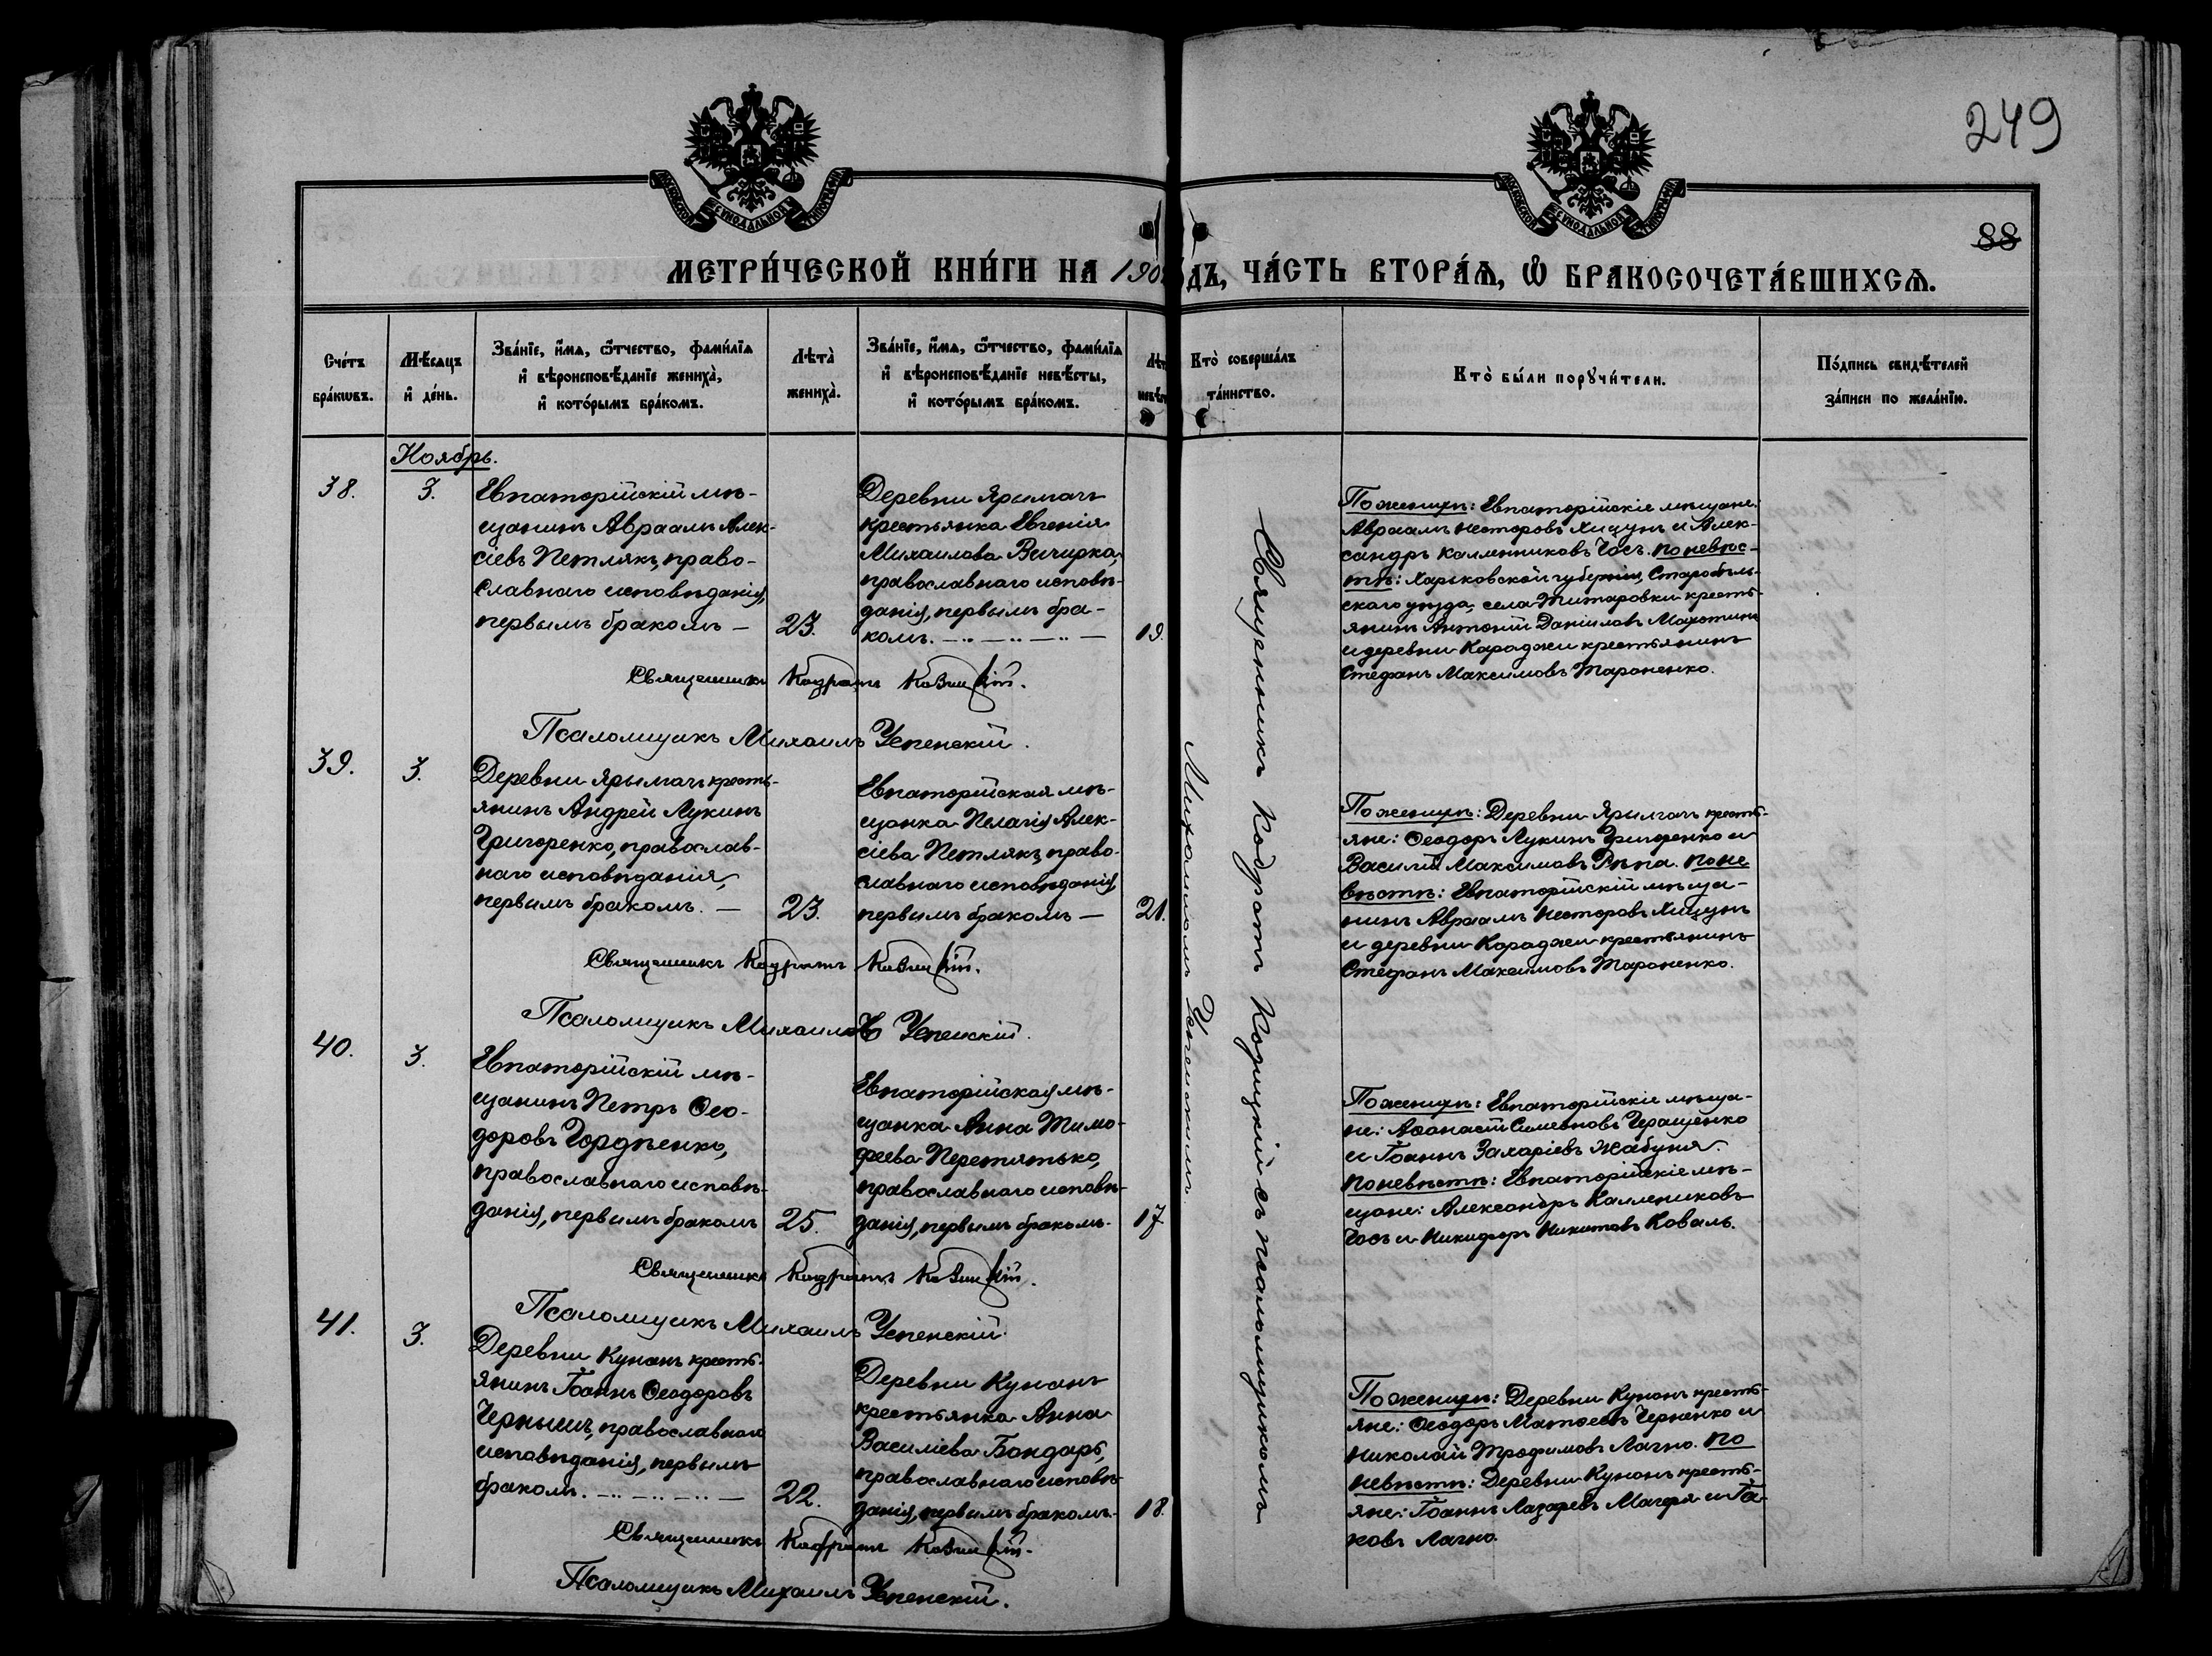 249
88
МОСКОВСКОЙ СѴНОДАЛЬНОЙ ТИПОГРАФІИ
МОСКОВСКОЙ СѴНОДАЛЬНОЙ ТИПОГРАФІИ
МЕТРИ́ЧЕСКОЙ КНИ́ГИ НА 190
ДЪ, ЧА́СТЬ ВТОРА́Я, Ѿ БРАКОСОЧЕТА́ВШИХСЯ.
Сче́тъ бра́кѡвъ.
Мѣ́сяцъ и҆ де́нь.
Зва́нїе, и҆́мѧ, ѻ҆́тчество, фами́лїѧ и҆ вѣроисповѣ́данїе жениха̀, и҆ кото́рымъ бра́комъ.
Лѣта̀ жениха̀.
Зва́нїе, и҆́мѧ, ѻ҆́тчество, фами́лїѧ и҆ вѣроисповѣ́данїе невѣ́сты, и҆ кото́рымъ бра́комъ.
Лѣт
невѣст
Кто̀ соверша́лъ та́инство.
Кто̀ бы́ли порꙋчи́тели.
По́дпись свидѣ́телей за́писи по жела́нїю.
Ноябрь.
38.
3.
Евпаторійскій мѣ-
щанинъ Авраамъ Алек-
сіевъ Петлякъ, право-
славнаго исповѣданія,
первымъ бракомъ —
23.
Деревни Ярылгачъ
крестьянка Евгенія
Михаилова Вичирка,
православнаго исповѣ-
данія, первымъ бра-
комъ.
19.
По женихѣ: Евпаторійскіе мѣщане:
Авраамъ Несторовъ Хищунъ и Алек-
сандръ Каллиниковъ Чосъ. по невѣс-
тѣ: Харьковской губерніи, Старобѣль-
скаго уѣзда, села Титаровки кресть-
янинъ Антоній Даніиловъ Махотинъ
и деревни Караджи крестьянинъ
Стефанъ Максимовъ Тараненко.
Священникъ Кодратъ Копицкій.
Псаломщикъ Михаилъ Успенскій.
39.
3.
Деревни Ярылгачъ кресть-
янинъ Андрей Лукинъ
Григоренко, православ-
наго исповѣданія,
первымъ бракомъ. —
23.
Евпаторійская мѣ-
щанка Пелагія Алек-
сіева Петлякъ, право-
славнаго исповѣданія,
первымъ бракомъ —
21.
По женихѣ: Деревни Ярылгачъ кресть-
яне: Ѳеодоръ Лукинъ Григоренко и
Василій Максимовъ Рѣпа. по не
вѣстѣ: Евпаторійскій мѣща-
нинъ Авраамъ Несторовъ Хищунъ
и деревни Караджи крестьянинъ
Стефанъ Максимовъ Тараненко.
Священникъ Кодратъ Копицкій.
Псаломщикъ Михаилъ Успенскій.
40.
3.
Евпаторійскій мѣ-
щанинъ Петръ Ѳео-
доровъ Гордѣенко,
православнаго исповѣ-
данія, первымъ бракомъ
25.
Евпаторійская мѣ-
щанка Анна Тимо-
феева Перетятько,
православнаго исповѣ-
данія, первымъ бракомъ.
17
По женихѣ: Евпаторійскіе мѣща-
не: Аѳанасій Симеоновъ Геращенко
и Іоаннъ Захаріевъ Жабуня.
по невѣстѣ: Евпаторійскіе мѣ-
щане: Александръ Каллиниковъ
Чосъ и Никифоръ Никитовъ Коваль.
Священникъ Кодратъ Копицкій.
Псаломщикъ Михаилъ Успенскій.
41.
3.
Деревни Кунанъ кресть-
янинъ Іоаннъ Ѳеодоровъ
Чернышъ, православнаго
исповѣданія, первымъ
бракомъ.
22.
Деревни Кунанъ
крестьянка Анна
Василіева Бондарь,
православнаго исповѣ-
данія, первымъ бракомъ.
18.
По женихѣ: Деревни Кунанъ кресть-
яне: Ѳеодоръ Матѳеевъ Черненко и
Николай Трофимовъ Лагно. по
невѣстѣ: Деревни Кунанъ кресть-
яне: Іоаннъ Лазаревъ Магеря и Іа-
ковъ Лагно.
Священникъ Кодратъ Копицкій.
Псаломщикъ Михаилъ Успенскій.
Священникъ Кодратъ Копицкій съ псаломщикомъ
Михаиломъ Успенскимъ